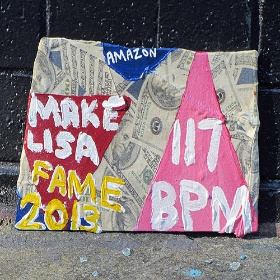 AMAZON
MAKE
LISA
FAME
2013
117
BPM